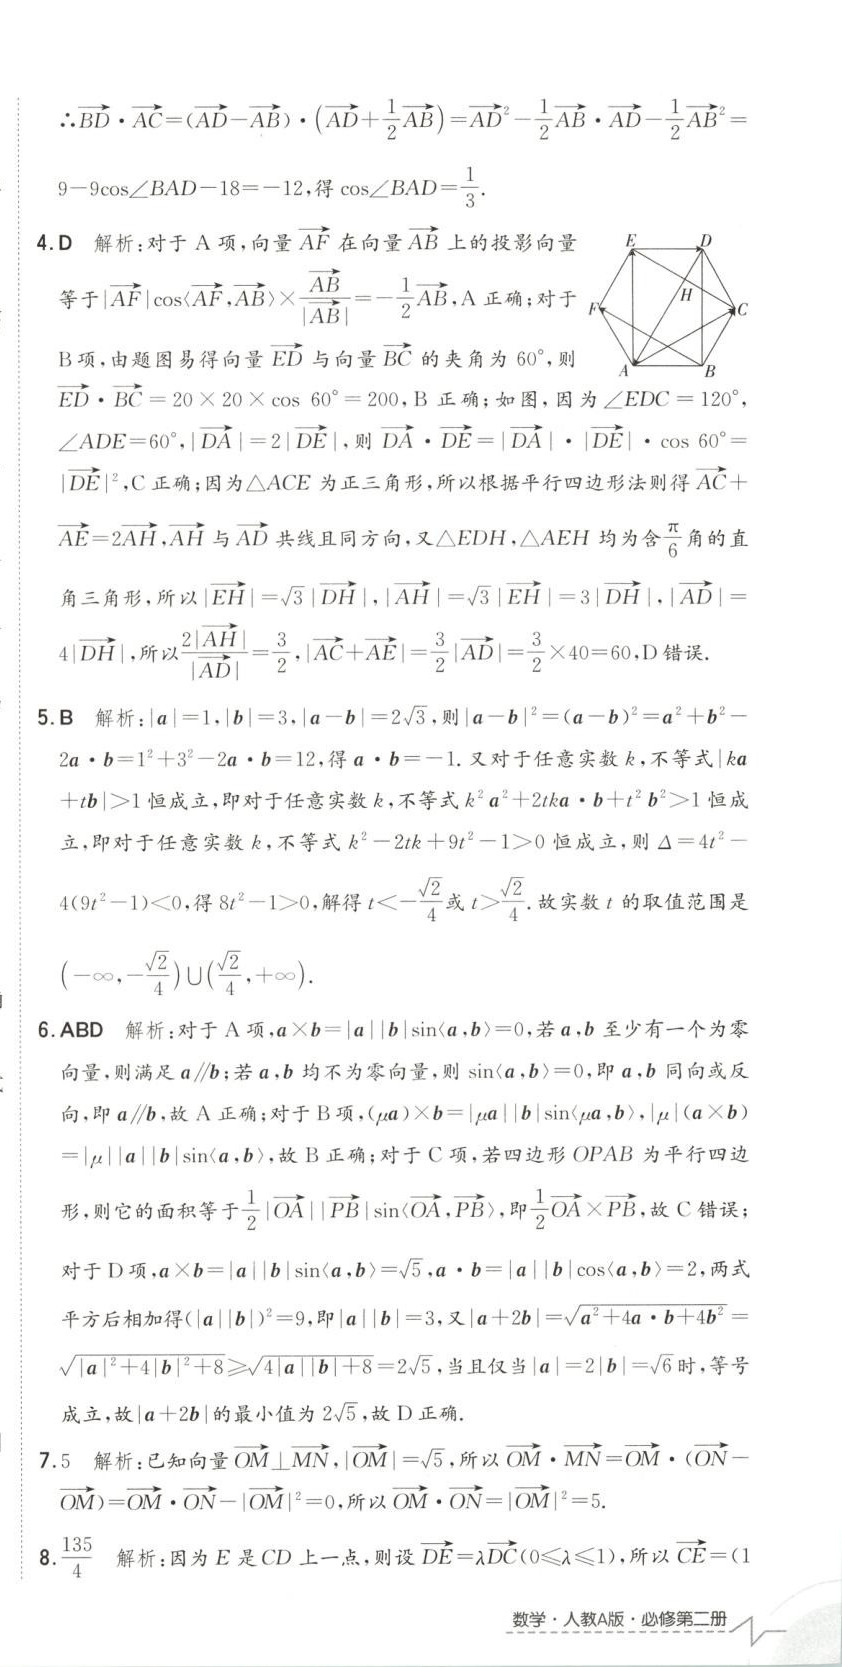 ∴$\overrightarrow{BD}$·$\overrightarrow{AC}$=($\overrightarrow{AD}$−$\overrightarrow{AB}$)·($\overrightarrow{AD}$+$\frac{1}{2}$$\overrightarrow{AB}$)=$\overrightarrow{AD}$²−$\frac{1}{2}$$\overrightarrow{AB}$·$\overrightarrow{AD}$−$\frac{1}{2}$$\overrightarrow{AB}$²=
9−9cos∠BAD−18=−12,得 cos∠BAD=$\frac{1}{3}$.
4.D 解析:对于 A 项,向量 $\overrightarrow{AF}$ 在向量 $\overrightarrow{AB}$ 上的投影向量
等于|$\overrightarrow{AF}$|cos⟨$\overrightarrow{AF}$,$\overrightarrow{AB}$⟩×$\frac{\overrightarrow{AB}}{|\overrightarrow{AB}|}$=−$\frac{1}{2}$$\overrightarrow{AB}$,A 正确;对于
B 项,由题图易得向量 $\overrightarrow{ED}$ 与向量 $\overrightarrow{BC}$ 的夹角为 60°,则
E D H F C A B
$\overrightarrow{ED}$·$\overrightarrow{BC}$=20×20×cos 60°=200,B 正确;如图,因为∠EDC=120°,
∠ADE=60°,|$\overrightarrow{DA}$|=2|$\overrightarrow{DE}$|,则 $\overrightarrow{DA}$·$\overrightarrow{DE}$=|$\overrightarrow{DA}$|·|$\overrightarrow{DE}$|·cos 60°=
|$\overrightarrow{DE}$|²,C 正确;因为△ACE 为正三角形,所以根据平行四边形法则得 $\overrightarrow{AC}$+
$\overrightarrow{AE}$=2$\overrightarrow{AH}$,$\overrightarrow{AH}$ 与 $\overrightarrow{AD}$ 共线且同方向,又△EDH,△AEH 均为含$\frac{π}{6}$角的直
角三角形,所以|$\overrightarrow{EH}$|=√3|$\overrightarrow{DH}$|,|$\overrightarrow{AH}$|=√3|$\overrightarrow{EH}$|=3|$\overrightarrow{DH}$|,|$\overrightarrow{AD}$|=
4|$\overrightarrow{DH}$|,所以$\frac{2|\overrightarrow{AH}|}{|\overrightarrow{AD}|}$=$\frac{3}{2}$,|$\overrightarrow{AC}$+$\overrightarrow{AE}$|=$\frac{3}{2}$|$\overrightarrow{AD}$|=$\frac{3}{2}$×40=60,D 错误.
5.B 解析:|a|=1,|b|=3,|a−b|=2√3,则|a−b|²=(a−b)²=a²+b²−
2a·b=1²+3²−2a·b=12,得 a·b=−1.又对于任意实数 k,不等式|ka
+tb|>1 恒成立,即对于任意实数 k,不等式 k²a²+2tka·b+t²b²>1 恒成
立,即对于任意实数 k,不等式 k²−2tk+9t²−1>0 恒成立,则 Δ=4t²−
4(9t²−1)<0,得 8t²−1>0,解得 t<−$\frac{\sqrt{2}}{4}$或 t>$\frac{\sqrt{2}}{4}$.故实数 t 的取值范围是
(−∞,−$\frac{\sqrt{2}}{4}$)∪($\frac{\sqrt{2}}{4}$,+∞).
6.ABD 解析:对于 A 项,a×b=|a||b|sin⟨a,b⟩=0,若 a,b 至少有一个为零
向量,则满足 a∥b;若 a,b 均不为零向量,则 sin⟨a,b⟩=0,即 a,b 同向或反
向,即 a∥b,故 A 正确;对于 B 项,(μa)×b=|μa||b|sin⟨μa,b⟩,|μ|(a×b)
=|μ||a||b|sin⟨a,b⟩,故 B 正确;对于 C 项,若四边形 OPAB 为平行四边
形,则它的面积等于$\frac{1}{2}$|$\overrightarrow{OA}$||$\overrightarrow{PB}$|sin⟨$\overrightarrow{OA}$,$\overrightarrow{PB}$⟩,即$\frac{1}{2}$$\overrightarrow{OA}$×$\overrightarrow{PB}$,故 C 错误;
对于 D 项,a×b=|a||b|sin⟨a,b⟩=√5,a·b=|a||b|cos⟨a,b⟩=2,两式
平方后相加得(|a||b|)²=9,即|a||b|=3,又|a+2b|=$\sqrt{a²+4a·b+4b²}$=
$\sqrt{|a|²+4|b|²+8}$≥$\sqrt{4|a||b|+8}$=2√5,当且仅当|a|=2|b|=√6时,等号
成立,故|a+2b|的最小值为 2√5,故 D 正确.
7.5 解析:已知向量 $\overrightarrow{OM}$⊥$\overrightarrow{MN}$,|$\overrightarrow{OM}$|=√5,所以 $\overrightarrow{OM}$·$\overrightarrow{MN}$=$\overrightarrow{OM}$·($\overrightarrow{ON}$−
$\overrightarrow{OM}$)=$\overrightarrow{OM}$·$\overrightarrow{ON}$−|$\overrightarrow{OM}$|²=0,所以 $\overrightarrow{OM}$·$\overrightarrow{ON}$=|$\overrightarrow{OM}$|²=5.
8.$\frac{135}{4}$ 解析:因为 E 是 CD 上一点,则设 $\overrightarrow{DE}$=λ$\overrightarrow{DC}$(0≤λ≤1),所以 $\overrightarrow{CE}$=(1
数学·人教A版·必修第二册